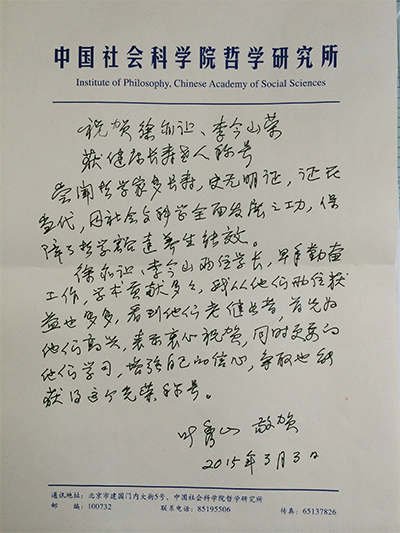 中国社会科学院哲学研究所
Institute of Philosophy, Chinese Academy of Social Sciences
祝贺徐尔让、李今山荣
获健康长寿老人称号
尝闻哲学家多长寿,史无明证,证在
当代,因社会和科学全面发展之功,保
障了哲学家道养生绩效。
徐尔让、李今山两位学长,早年勤奋
工作,学术贡献多多,我从他们两位获
益也多多,看到他们老健如昔,首先为
他们高兴,表示衷心祝贺,同时更要向
他们学习,增强自己的信心,争取也能
获得这个光荣称号。
叶秀山 敬贺
2015年3月3日
通讯地址:北京市建国门内大街5号,中国社会科学院哲学研究所
邮 编:100732 联系电话:85195506 传真:65137826